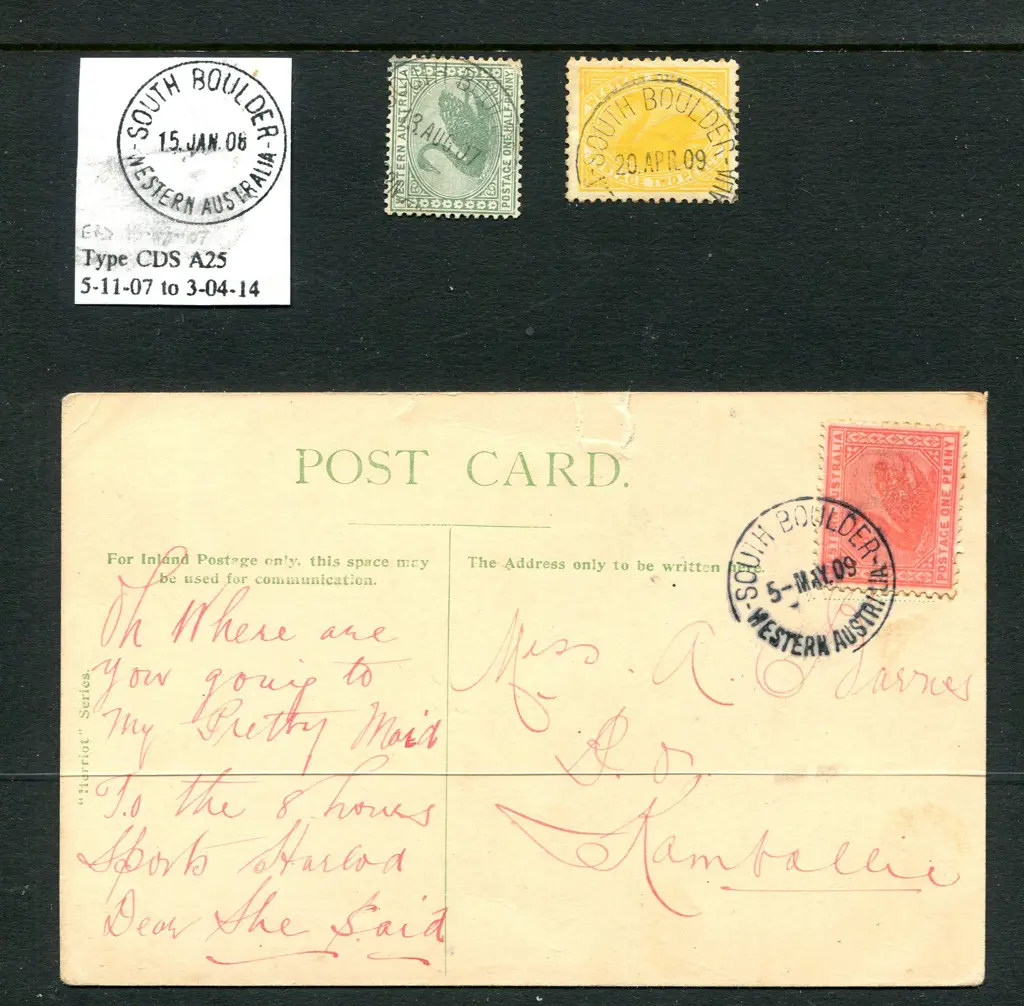 SOUTH BOULDER
15. JAN. 08
WESTERN AUSTRALIA
ERD
Type CDS A25
5-11-07 to 3-04-14
WESTERN AUSTRALIA
POSTAGE ONE HALFPENNY
AUG. 07
SOUTH BOULDER
20. APR. 09
POST CARD.
For Inland Postage only, this space may
be used for communication.
The Address only to be written here.
POSTAGE ONE PENNY
AUSTRALIA
SOUTH BOULDER
5-MAY. 09
WESTERN AUSTRALIA
"Herriot" Series.
Oh Where are
You going to
My Pretty Maid
To the 8 hours
Sports
Dear She Said
Miss. A
P. O.